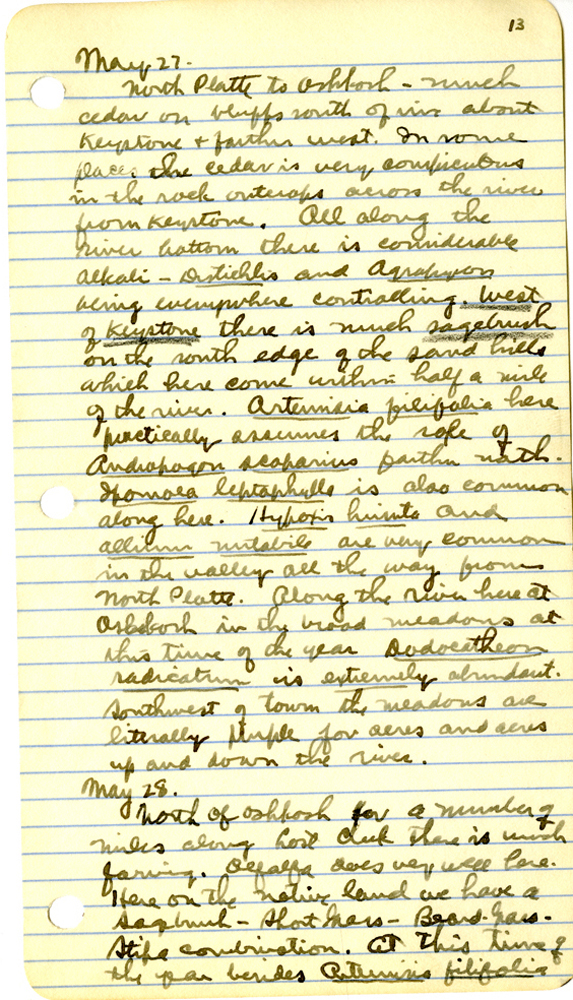 13
May 27.
North Platte to Oshkosh - much
cedar on bluffs south of river about
Keystone + farther west. In some
places the cedar is very conspicuous
in the rock outcrops across the river
from Keystone. All along the
river bottom there is considerable
alkali - Distichlis and Agropyron
being everywhere controlling. West
of Keystone there is much sagebrush
on the south edge of the sand hills
which here come within half a mile
of the river. Artemisia filifolia here
practically assumes the role of
Andropogon scoparius farther north.
Ipomoea leptophylla is also common
along here. Hypoxis hirsuta and
allium mutabile are very common
in the valley all the way from
North Platte. Along the river here at
Oshkosh in the broad meadows at
this time of the year Dodocatheon
radicatum is extremely abundant.
Southwest of town the meadows are
literally purple for acres and acres
up and down the river.
May 28.
North of Oshkosh for a number of
miles along Lost Creek there is much
farming. Alfalfa does very well here.
Here on the native land we have a
Sagebrush - Short grass - Beard-grass -
Stipa combination. At this time of
the year besides Artemisia filifolia